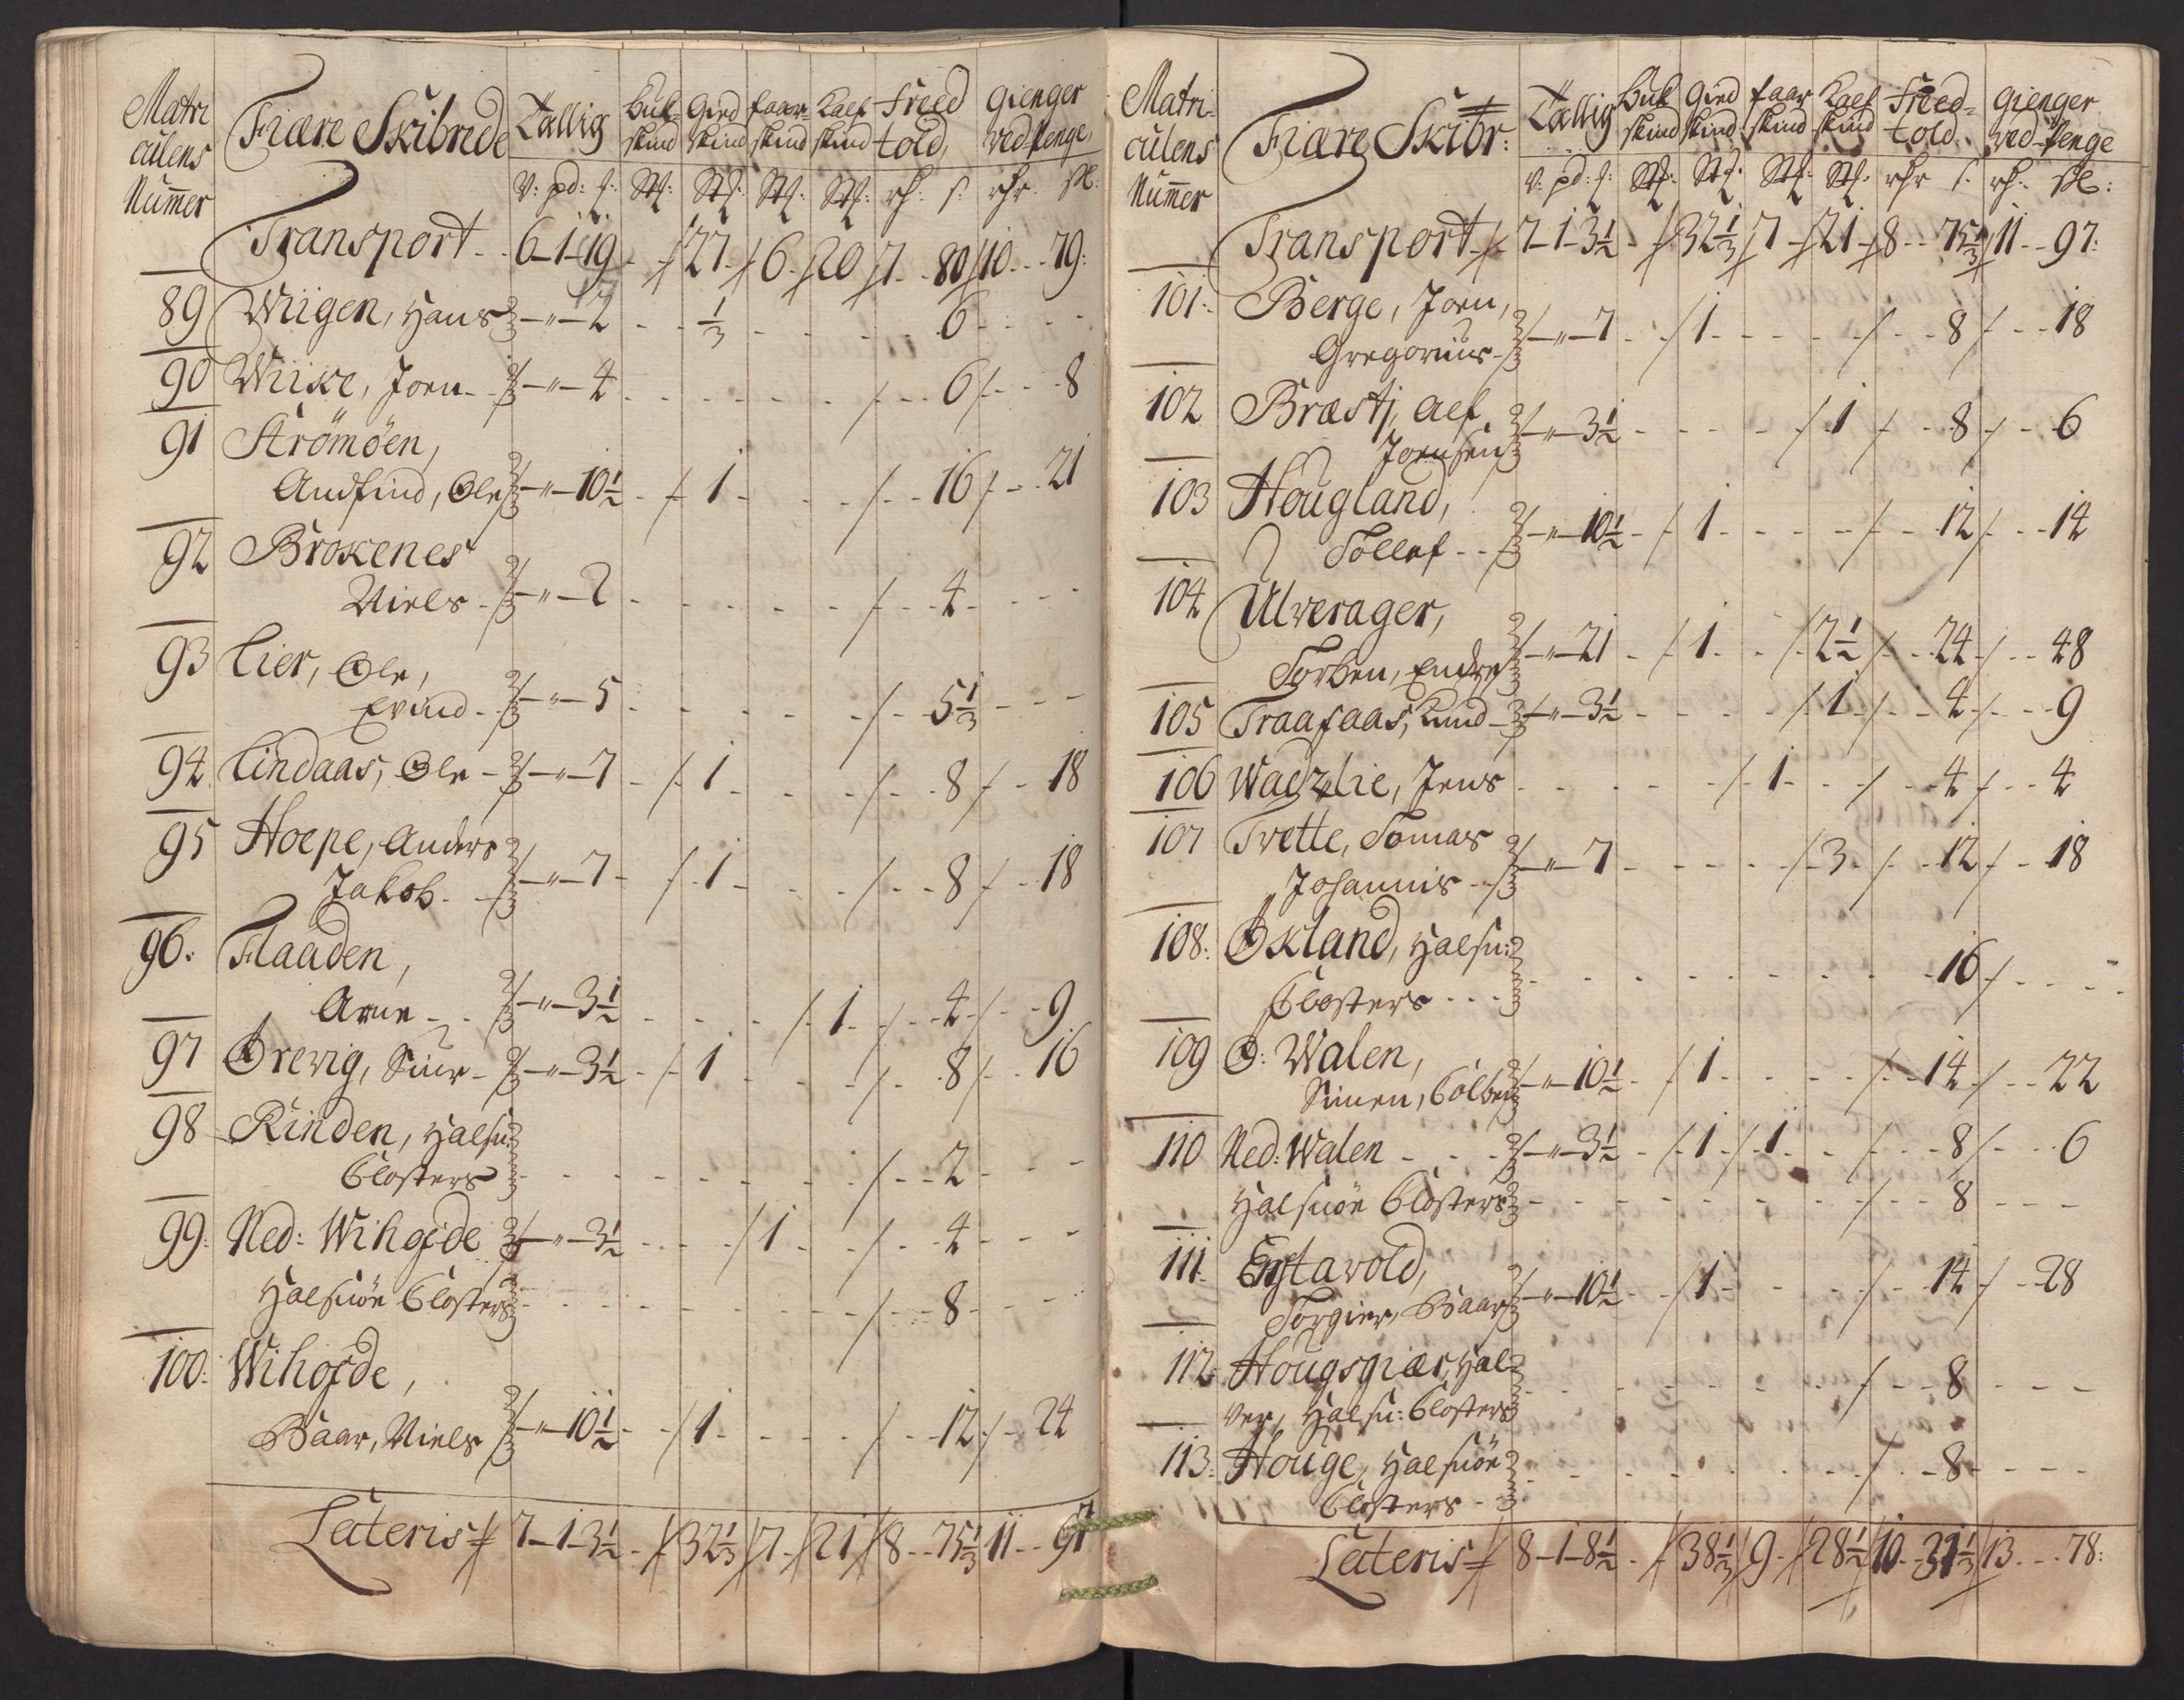 Matri
culens
Nummer
Fiære Skibrede
Tallig
Buk skind
Gied skind
faar skind
Kalf skind
Sreed told
gienger ved penge
V: pd: Stk: Stk: Stk: Stk: rh: s: rhr: sk:
Transport - 6-1-19 - 27 - 6 - 20 - 7 - 80 - 10 - 79:
89 Wiigen, Hans - " - 2 - 1/3 - 6
90 Wiike, Joen - " - 4 - 6 - 8
91 Strömöen,
Andfind, Ole - " - 10 1/2 - 1 - 16 - 21
92 Brokenes
Niels - " - 2 - 4
93 Lier, Ole,
Evind - " - 5 - 5 1/3
94 Lindaas, Ole - " - 7 - 1 - 8 - 18
95 Hoepe, Anders
Jakob - " - 7 - 1 - 8 - 18
96: Flaaden,
Arne - " - 3 1/2 - 1 - 4 - 9
97 Ørevig, Siur - " - 3 1/2 - 1 - 8 - 16
98 Rinden, Halsn:
Closters - 2
99: Ned: Wihofde - " - 3 1/2 - 1 - 4
Halsnöe Closters - 8
100: Wihofde,
Baar, Niels - " - 10 1/2 - 1 - 12 - 24
Lateris 7-1-3 1/2 - 32 1/3 - 7 - 21 - 8 - 75 1/3 - 11 - 97
Matri-
culens
Nummer
Fiære Skibr:
Tallig
Buk skind
Gied skind
faar skind
Kalf skind
Sreed-told
gienger ved penge
V: pd: Stk: Stk: Stk: Stk: rhr s: rh: sk:
Transport - 7-1-3 1/2 - 32 1/3 - 7 - 21 - 8 - 75 1/3 - 11 - 97:
101: Berge, Joen,
Gregorius - " - 7 - 1 - 8 - 18
102 Bræstj, Alf
Joensen - " - 3 1/2 - 1 - 8 - 6
103 Hougland,
Tollef - " - 10 1/2 - 1 - 12 - 14
104 Ulverager,
Torben, Endre - " - 21 - 1 - 2 1/2 - 24 - 48
105 Traafaas, Knud - " - 3 1/2 - 1 - 4 - 9
106 Wadzlie, Jens - 1 - 4 - 4
107 Tvette, Tomas
Johannis - " - 7 - 3 - 12 - 18
108: Økland, Halsn:
Closters - 16
109 O: Walen,
Simen, Colben - " - 10 1/2 - 1 - 14 - 22
110 Ned: Walen - " - 3 1/2 - 1 - 1 - 8 - 6
Halsnöe Closters - 8
111: Eystavold,
Torgier, Baar - " - 10 1/2 - 1 - 14 - 28
112: Hougsgiær, Hal-
ver, Halsn: Closters - 8
113: Houge, Halsnöe
Closters - 8
Lateris 8-1-8 1/2 - 38 1/3 - 9 - 28 1/2 - 10 - 31 1/3 - 13 - 78: